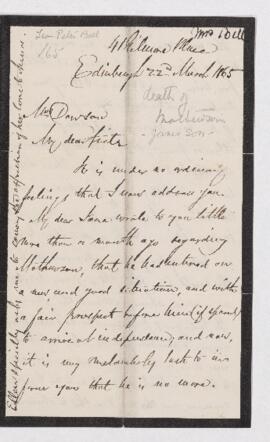 Mrs Bell
from Peter Bell
165
41 Gilmore Place
Edinburgh 22d March 1865
death of
Matherson
Janes Son
Mrs Dawson
My dear Sister
It is under no ordinary
feelings that I now address you.
My dear Jane wrote to you little
more than a month ago regarding
Matherson, that he had entered on
a new and good situation, and with
a fair prospect before him (if spared)
to arrive at independency and now,
it is my melancholy task to in-
form you that he is no more.
Ellen specially asks me to convey the affection of her love to